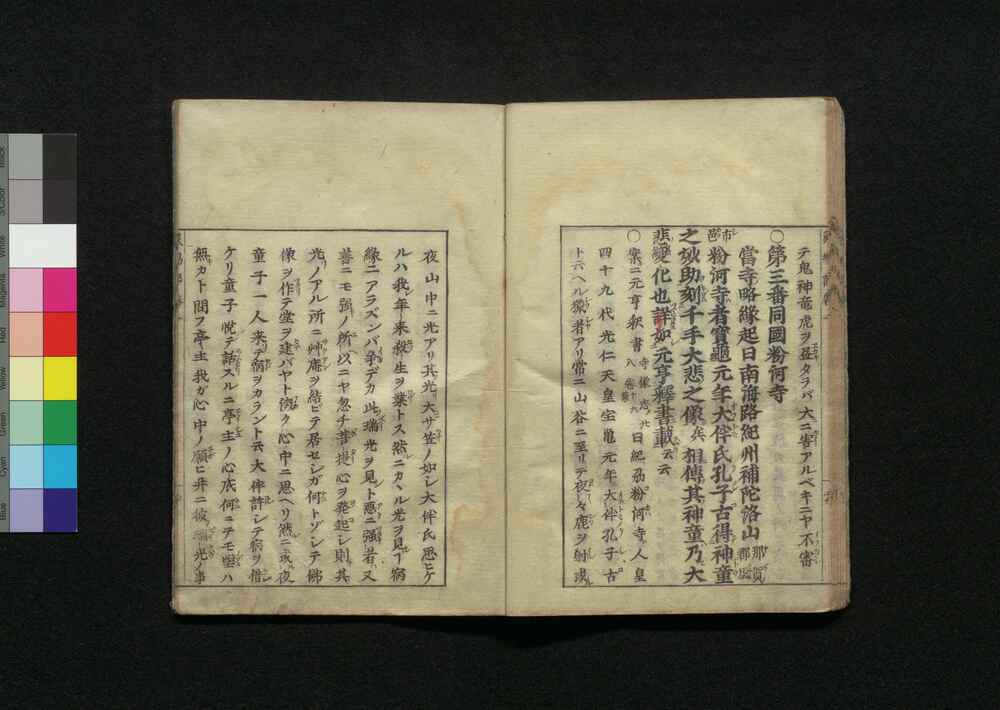 テ鬼神竜虎ヲ登タラバ大ニ害アルベキニヤ不審
○第三番同國粉河寺
當寺略緣起曰南海路紀州補陀洛山那賀郡
市邑粉河寺者寶龜元年大伴氏孔子古得神童
之獻助刻千手大悲之像矣相傳其神童乃大
悲變化也詳如元亨釋書載云云
○案ニ元亨釈書寺像志九曰紀州粉河寺人皇
四十九代光仁天皇宝亀元年大伴孔子古
ト云ヘル猟者アリ常ニ山谷ニ至リテ夜々鹿ヲ射ル
夜山中ニ光アリ其光大サ笠ノ如シ大伴氏思ヒケ
ルハ我年来殺生ヲ業トス然ニカヽル光ヲ見ル宿
緣ニアラズンバ爭デカ此瑞光ヲ見ト悪ニ強者ハ又
善ニモ強ノ所以ニヤ忽チ菩提心ヲ発起シ則其
光ノアル所ニ艸庵ヲ結ビテ居セシガ何トゾシテ佛
像ヲ作テ堂ヲ建バヤト深ク心中ニ思ヘリ然ニ或夜
童子一人来テ宿ヲカラント云大伴許シテ宿ヲ借
ケリ童子悦テ話スルニ亭主ノ心底何ニテモ望ハ
無カト問フ亭主我ガ心中ノ願ヒ并ニ彼瑞光ノ事
Black
3/Color
White
Magenta
Red
Yellow
Green
Cyan
Blue